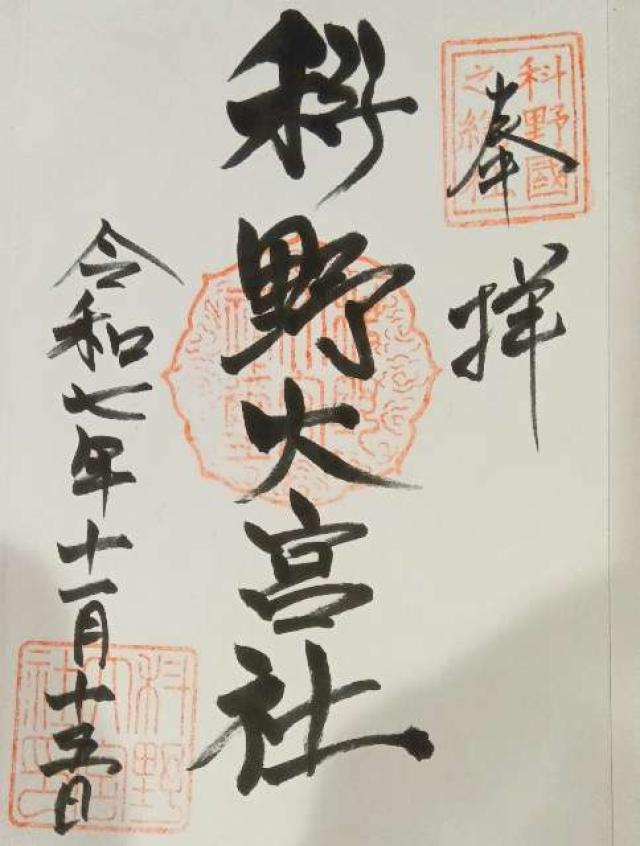 奉拝
科野國之総社
科野大宮社
令和七年十一月十五日
科野大宮社印